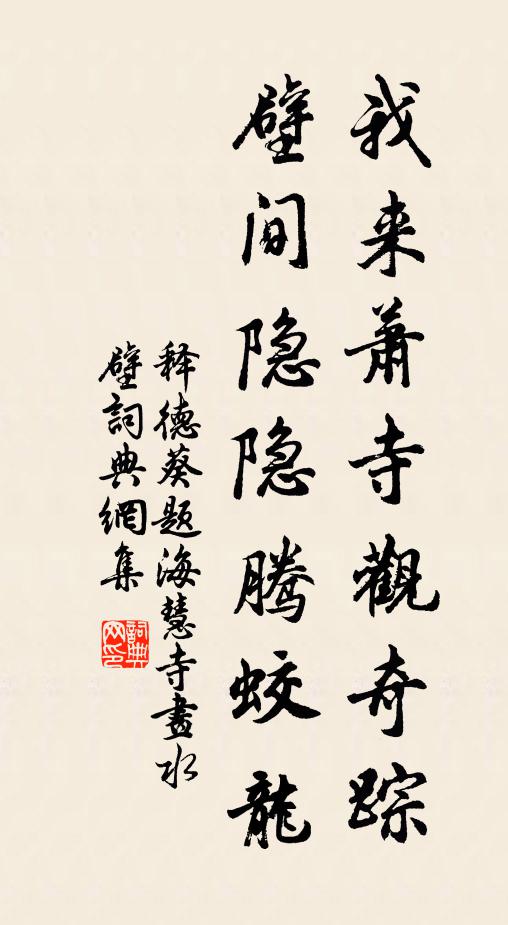 我来萧寺觀奇踪
壁间隐隐腾蛟龍
释德葵题海慧寺畫水
壁詞典網集
詞典网印